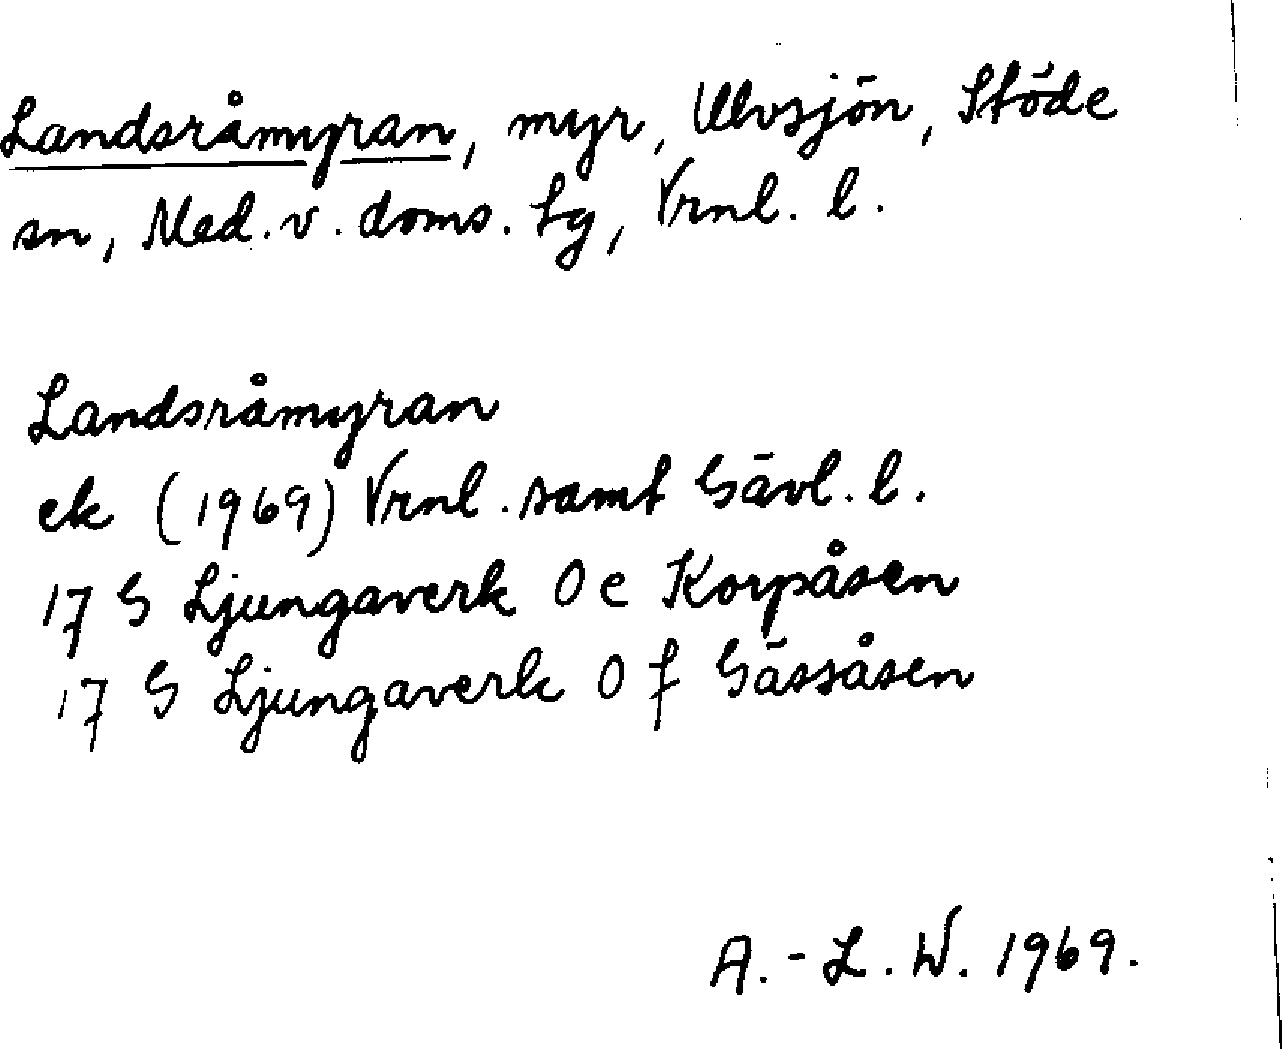 Landsråmyran, myr, Ulvsjön, Stöde
sn, Med. v. doms. lg, Vrnl. l.
Landsråmyran
ek (1969) Vrnl. samt Gävl. l.
17 G Ljungaverk 0 e Korpåsen
17 G Ljungaverk 0 f Gässåsen
A.-L. W. 1969.